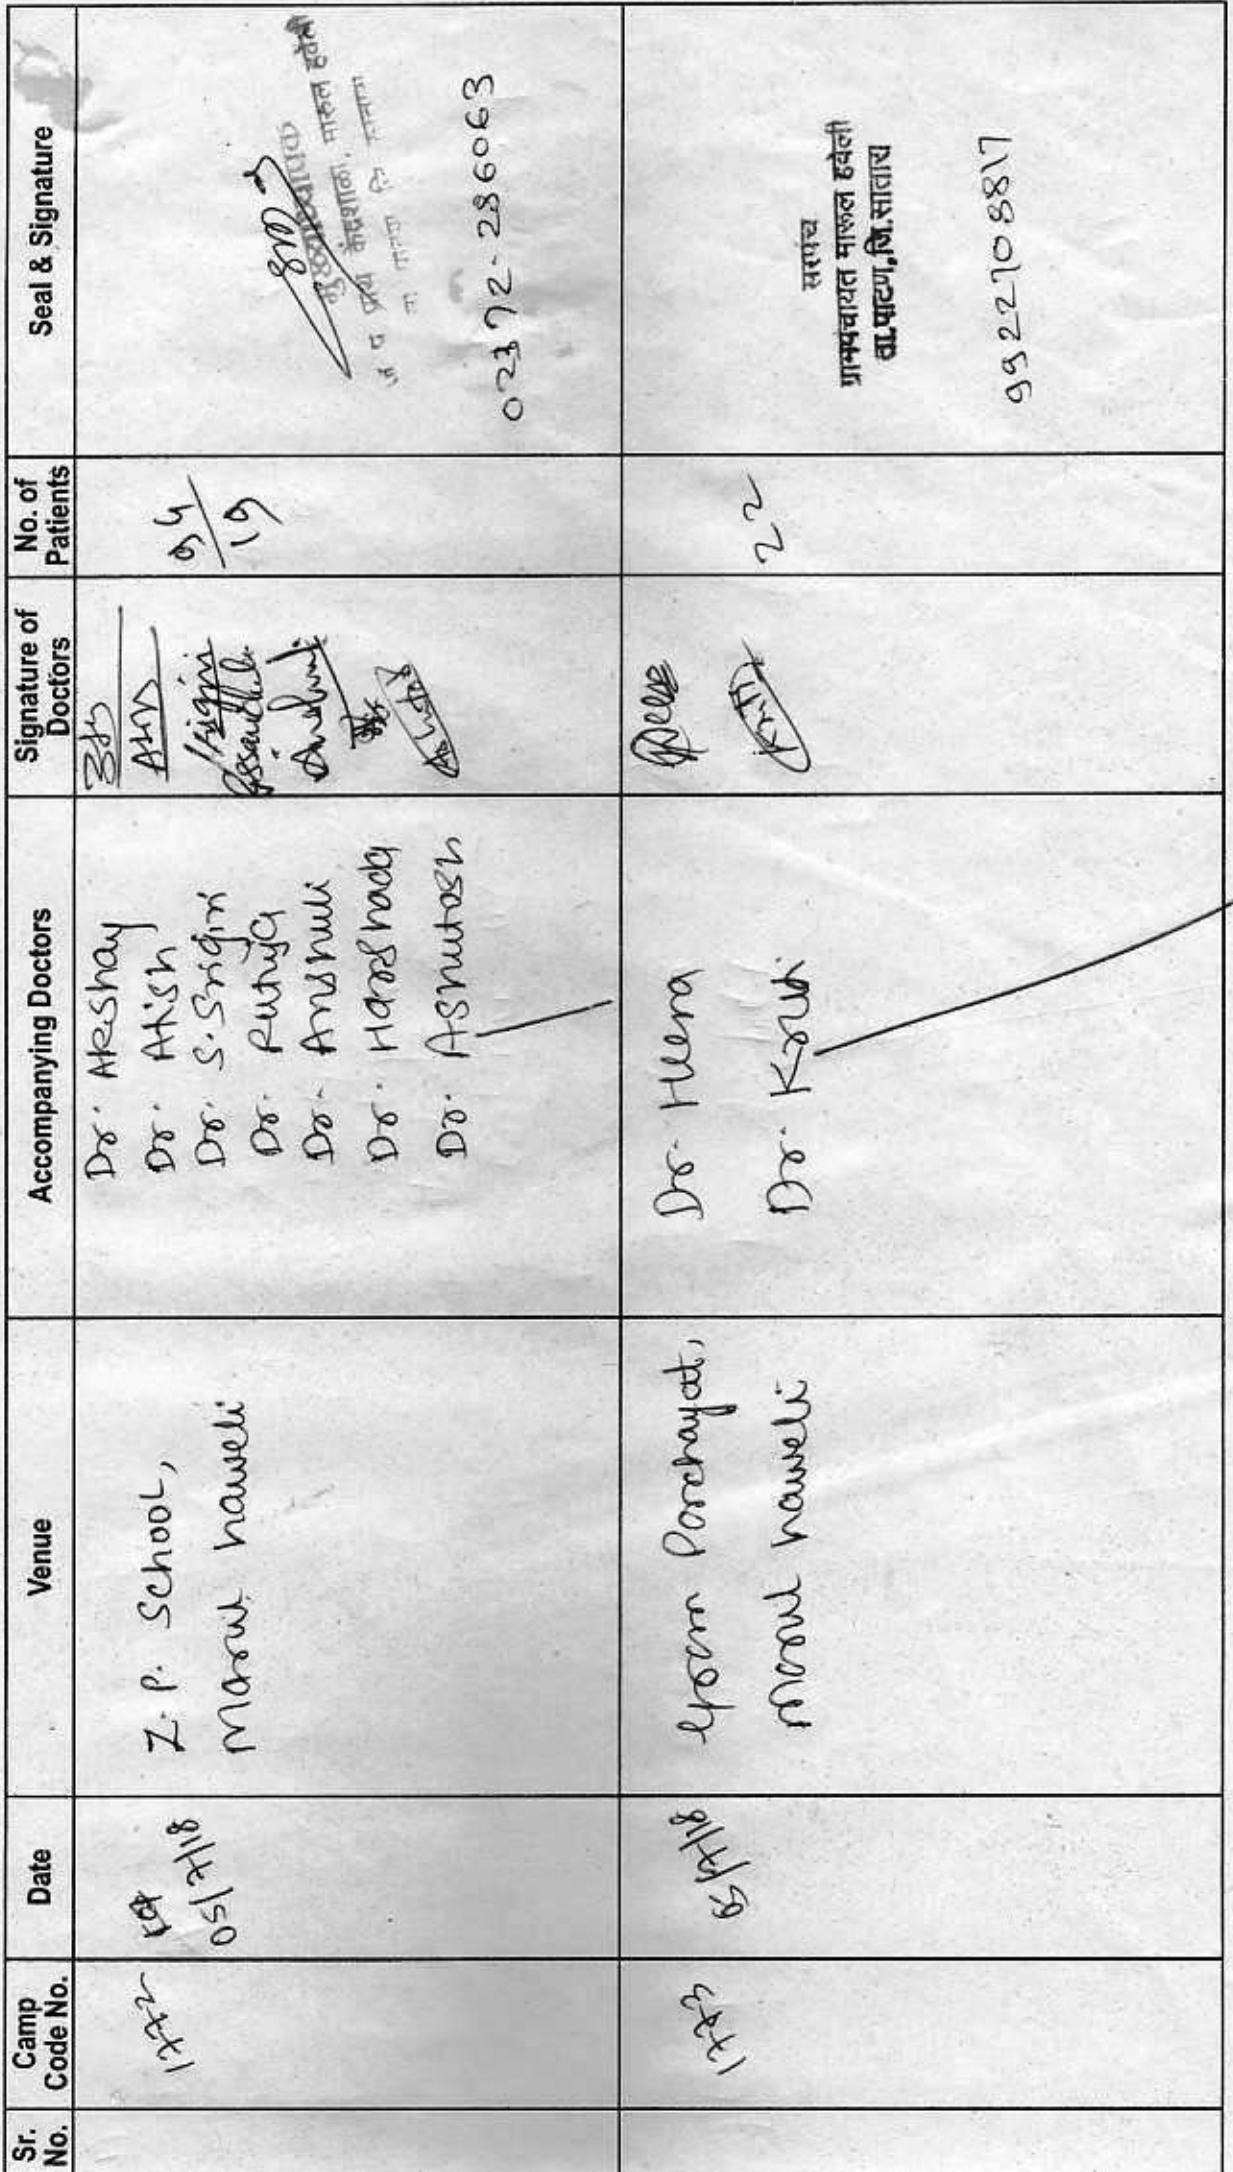 Sr. No.
Camp Code No.
Date
Venue
Accompanying Doctors
Signature of Doctors
No. of Patients
Seal & Signature
1772
05/7/18
Z. P. School,
Marul haweli
Dr. Akshay
Dr. Atish
Dr. S. Srigiri
Dr. Rutuja
Dr. Anshuli
Dr. Harshada
Dr. Ashutosh
94
19
मुख्याध्यापक
केंद्रशाळा, मारुल हवेली
02372-286063
1773
05/7/18
Gram Panchayat,
Marul haweli
Dr. Heena
Dr. Kruti
Kruti
22
सरपंच
ग्रामपंचायत मारुल हवेली
ता.पाटण,जि.सातारा
9922708817